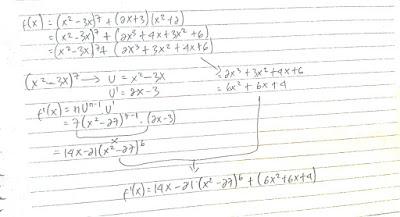 f(x) = (x² - 3x)⁷ + (2x+3)(x²+2)
= (x²-3x)⁷ + (2x³ + 4x + 3x² + 6)
= (x²-3x)⁷ + (2x³ + 3x² + 4x + 6)
(x² - 3x)⁷ → U = x² - 3x
U' = 2x - 3
= 2x³ + 3x² + 4x + 6
= 6x² + 6x + 4
f'(x) = n Uⁿ⁻¹ U'
= 7(x² - 27)⁷⁻¹ . (2x-3)
= 14x - 21(x² - 27)⁶
f'(x) = 14x - 21 (x² - 27)⁶ + (6x² + 6x + 4)